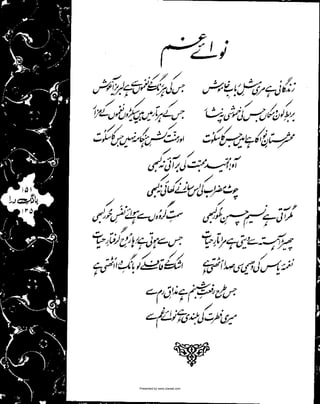 نوائے غم
زندگانی ہے مری مثلِ ربابِ خاموش جس کی ہر رنگ کے نغموں سے ہے لبریز آغوش
بربطِ کون و مکاں جس کی خموشی پہ نثار جس کے ہر تار میں ہیں سینکڑوں نغموں کے مزار
محشرستانِ نوا کا ہے امیں جس کا سکوت اور منت کشِ ہنگامہ نہیں جس کا سکوت
آہ! امید محبت کی بر آئی نہ کبھی
چوٹ مضراب کی اس ساز نے کھائی نہ کبھی
مگر آتی ہے نسیمِ چمنِ طور کبھی سمتِ گردوں سے ہوائے نفسِ حور کبھی
چھیڑ آہستہ سے دیتی ہے مرا تارِ حیات جس سے ہوتی ہے رہا روحِ گرفتارِ حیات
نغمۂ یاس کی دھیمی سی صدا اٹھتی ہے اشک کے قافلے کو بانگِ درا اٹھتی ہے
جس طرح رفعتِ شبنم ہے مذاقِ رم سے
میری فطرت کی بلندی ہے نوائے غم سے
۱۵۱
بانگ درا
۱۳۵